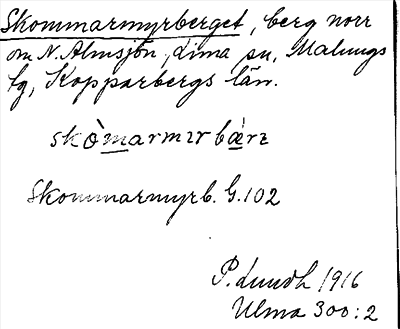 Skommarmyrberget, berg norr
om N. Almsjön, Lima sn, Malungs
tg, Kopparbergs län.
skòmarmɪrbærɪ
Skommarmyrb. G. 102
P. Lundh 1916
Ulma 300:2